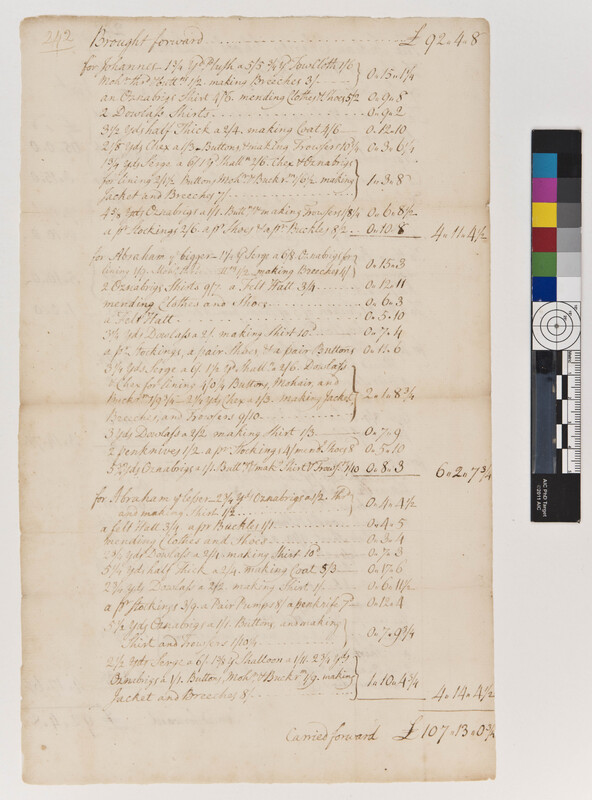 242 Brought forward ........ £ 92"4"8
for Johannes 1¾ Yds Plush a 5/5 ¾ Yd Tow Cloth 1/6
1/2. making Breeches 3/ 0"15"1¼
an Oznabrigs Shirt 4/6. mending Clothes & Shoes 5/2 0"9"8
2 Dowlass Shirts 0"9"2
3½ Yds half Thick a 2/4. making Coat 4/6 0"12"10
2⅛ Yds Chex a 1/3 Buttons, & making Trowsers 10¼ 0"3"6¼
1¾ Yds Serge a 6/ 1 Yd Shalln 2/6. Chex & Oznabrigs
for Lining 2/4½ Buttons, Moh. & Buckrm 1/6½ making 1"3"8
Jacket and Breeches 7/
Yds Oznabrigs a 1/1. Buttns & making Trowsers 1/8¼ 0"6"8½
a pr Stockings 2/6. a pr Shoes & a pr Buckles 8/2 0"10"8 4"11"4½
for Abraham ye bigger Yd Serge a 6/8 Oznabrigs for
Lining 1/2. making Breeches 4/ 0"15"3
2 Oznabrigs Shirts 9/7 a Felt Hatt 3/4 0"12"11
mending Clothes and Shoes 0"6"3
a Felt Hatt 0"5"10
Yds Dowlass a 2/1 making Shirt 10d 0"7"4
a pr Stockings, a pair Shoes, & a pair Buttons 0"11"6
Yds Serge a 6/ 1½ Yd Shalln a 2/6. Dowlass
& Chex for Lining 4/0¼ Buttons, Mohair, and
Buckrm Yds Chex a 1/3. making Jacket, 2"1"8¾
Breeches, and Trowsers 9/10
3 Yds Dowlass a 2/2 making Shirt 1/3 0"7"9
2 penknives 1/2. a pr Stockings ment Shoes 8 0"5"10
Yds Oznabrigs a 1/1. Buttns & mak. Shirt & Trowsrs 0"8"3 6"2"7¾
for Abraham ye lesser 2¾ Yds Oznabrigs a 1/2. Thd
and making Shirt 1/2 0"4"4½
a felt Hatt 3/4. a pr Buckles 1/1 0"4"5
mending Clothes and Shoes 0"3"4
Yds Dowlass a 2/4. making Shirt 10d 0"7"3
Yds half Thick a 2/4. making Coat 5/3 0"17"6
Yds Dowlass a 2/2. making Shirt 1/ 0"6"11½
a pr Stockings 3/9. a Pair Pumps 8/ a penknife 7d 0"12"4
5½ Yds Oznabrigs a 1/1. Buttons, and making
Shirt and Trowsers 1/10¼ 0"7"9¾
2½ Yds Serge a 6/ Yd Shalloon a 1/11. 2¾ Yds
Oznabrigs a 1/1. Buttons, Moh. & Buckrm 1/9. making 1"10"4¾
Jacket and Breeches 8/ 4"14"4½
Carried forward £ 107"13"0¾
AIC PhD Target
©2011 AIC